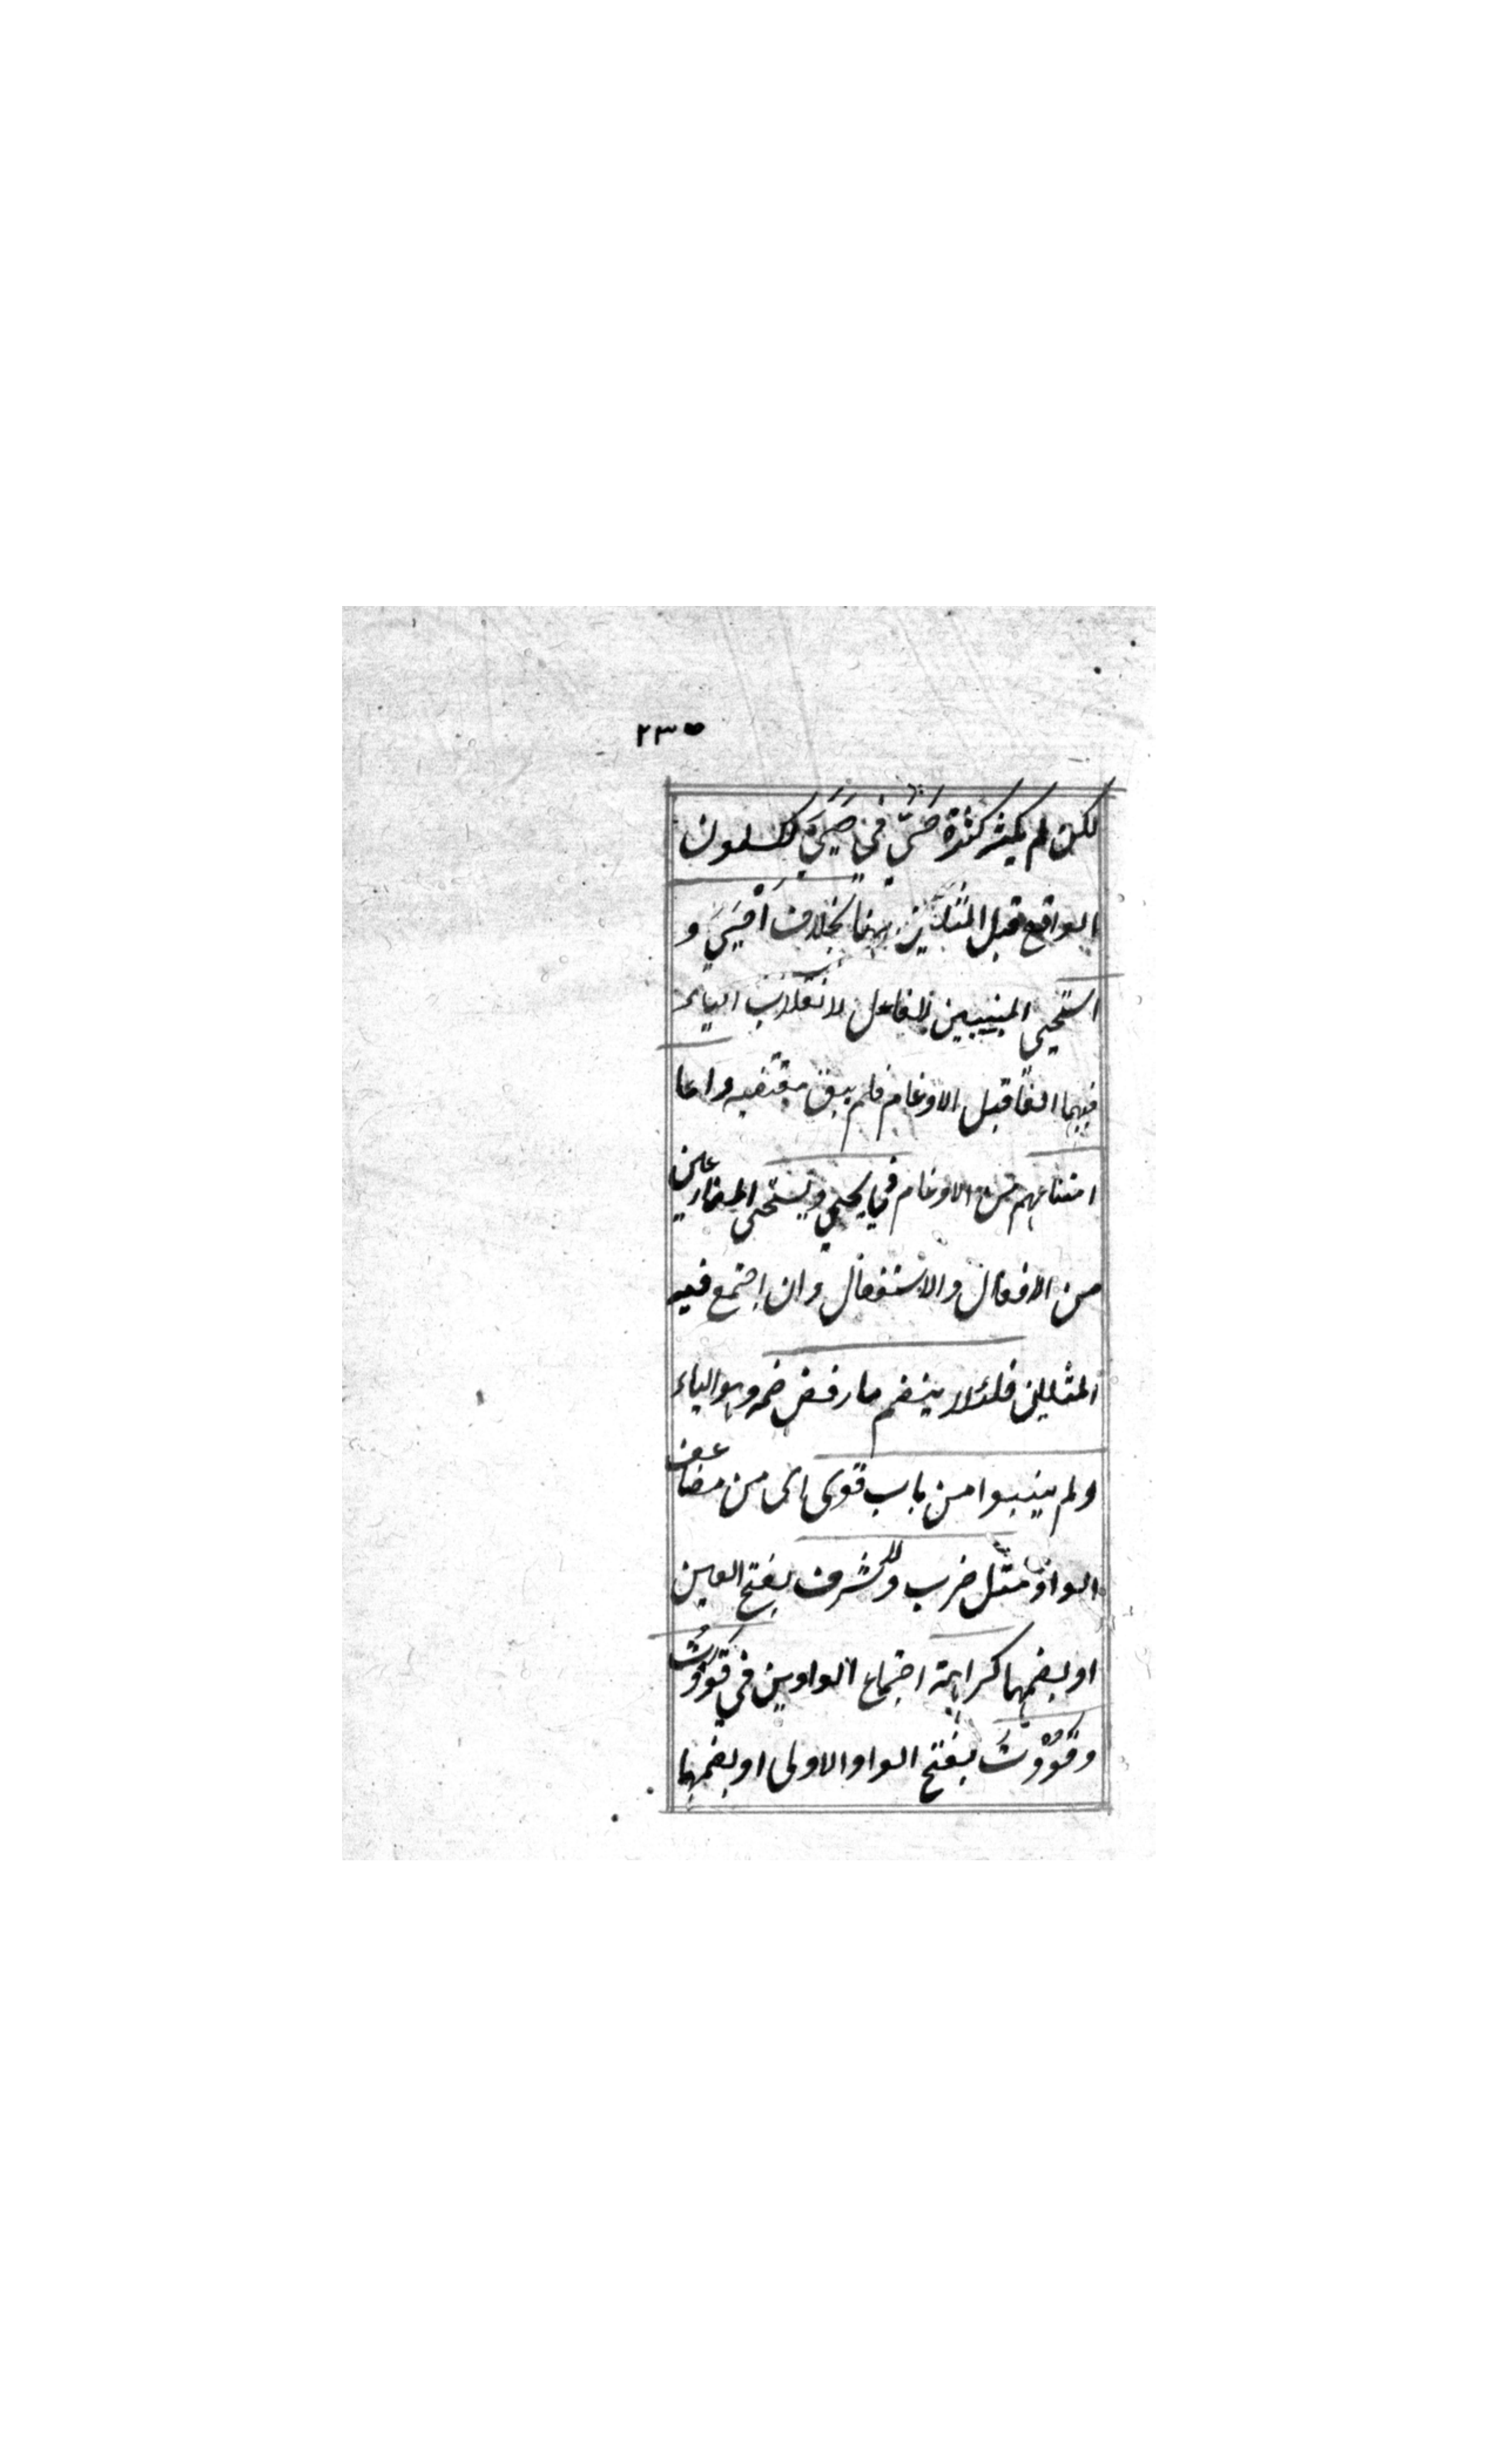 ٢٣٥
لكن لم يكثر كثرة حَيّ في حَيِيَ للسكون
الواقع قبل المثلين بهما بخلاف أَحْيَيَ و
استحيي المبنيين للفاعل لانقلاب الياء
فيهما الفًا قبل الادغام فلم يبق مقتضيه واما
امتناعهم من الادغام في يحيي ويستحيي المضارعين
من الافعال والاستفعال وان اجتمع فيه
المثلين فلئلا ينضم ما رفض ضمه وهو الياء
ولم يبنوا من باب قوى اى من مضاعف
الواو مثل ضرب ولا شرف بفتح العين
او بضمها كراهة اجتماع الواوين في قَوَوْتُ
وقَوُوْتَ بفتح الواو الاولى او بضمها